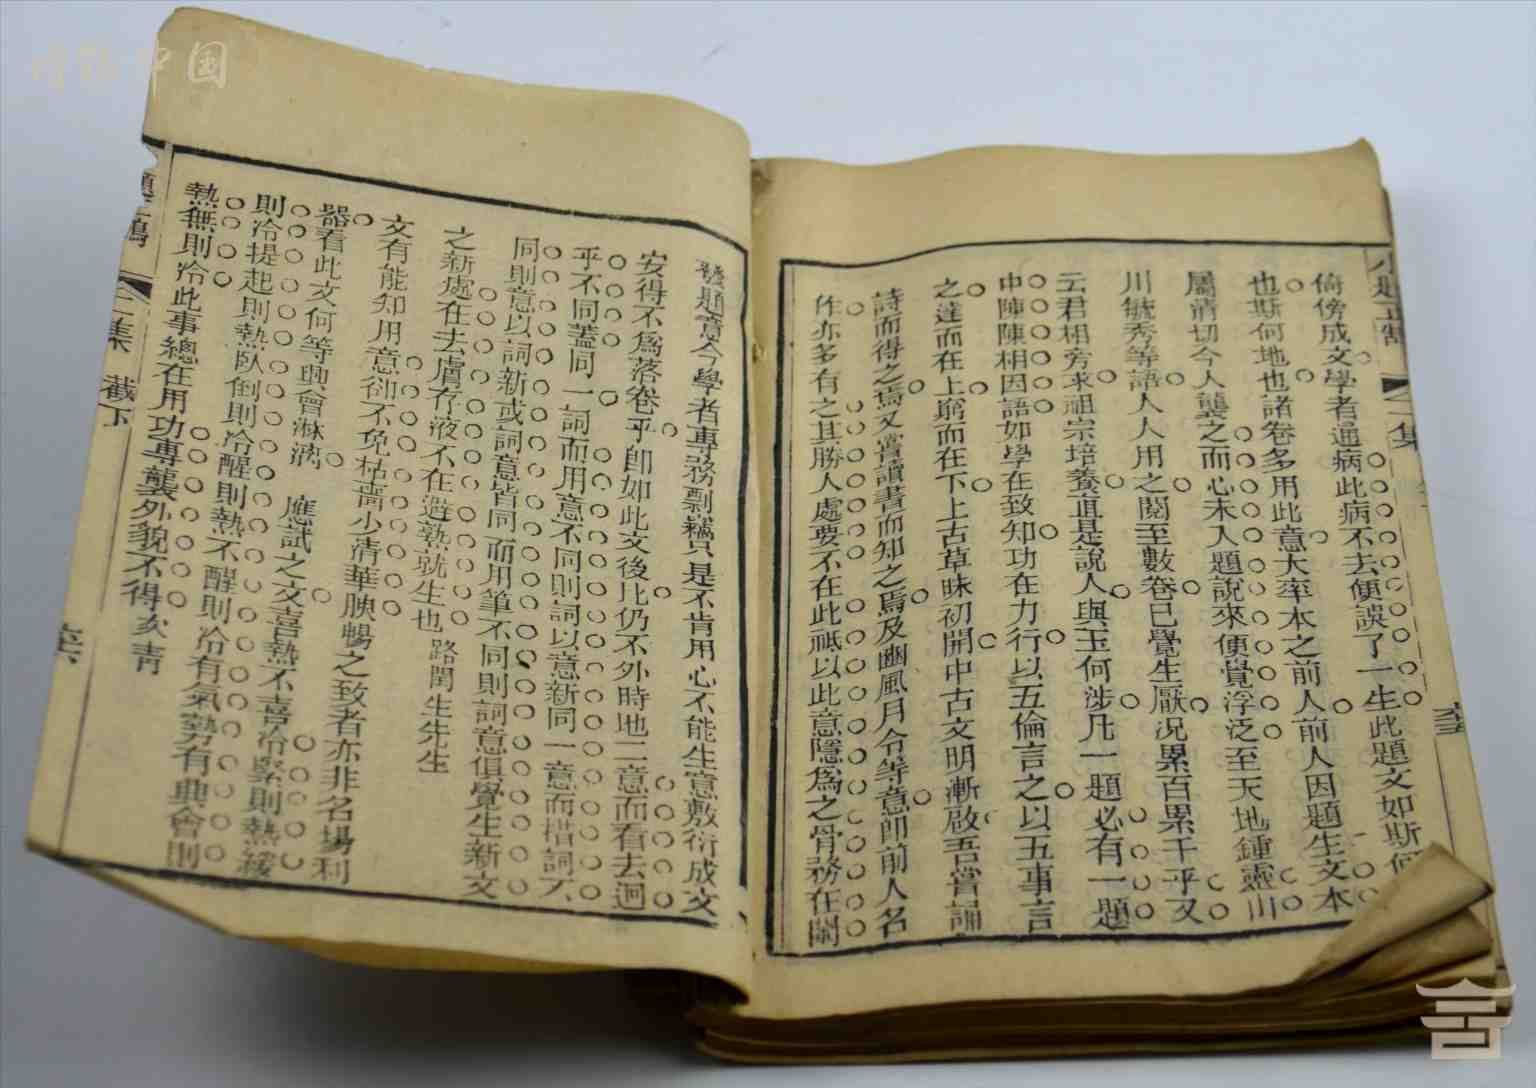 中国
小題正鵠
二集
倚傍成文學者通病此病不去便誤了一生此題文如斯何
也斯何地也諸卷多用此意大率本之前人前人因題生文本
屬清切今人襲之而心未入題說來便覺浮泛至天地鍾靈川
川毓秀等語人人用之閱至數卷已覺生厭況累百累千乎又
云君相旁求祖宗培養直是說人與玉何涉凡一題必有一題
中陳陳相因語如學在致知功在力行以五倫言之以五事言
之達而在上窮而在下上古草昧初開中古文明漸啟吾嘗誦
詩而得之焉又嘗讀書而知之焉及豳風月令等意卽前人名
作亦多有之其勝人處要不在此祗以此意隱爲之骨務在闡
發題意今學者專務剽竊只是不肯用心不能生意敷衍成文
安得不爲落卷乎卽如此文後比仍不外時地二意而看去迥
乎不同蓋同一詞而用意不同則詞以意新同一意而措詞不
同則意以詞新或詞意皆同而用筆不同則詞意俱覺生新文
之新處在去膚存液不在避熟就生也 路閏生先生
文有能知用意卻不免枯嗇小清華腴暢之致者亦非名場利
器看此文何等興會淋漓 應試之文喜熱不喜冷緊則熱緩
則冷提起則熱臥倒則冷醒則熱不醒則冷有氣勢有典會則
熱無則冷此事總在用功專襲外貌不得亥青
題正鵠
二集
截下